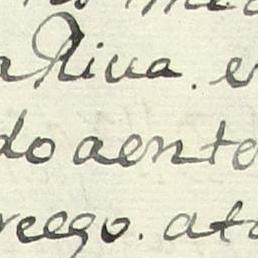 a Riva. e
do aente
reego. ato